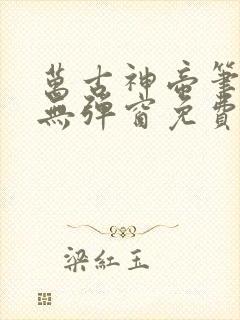 萬古神帝筆
無彈窗免費
梁紅玉